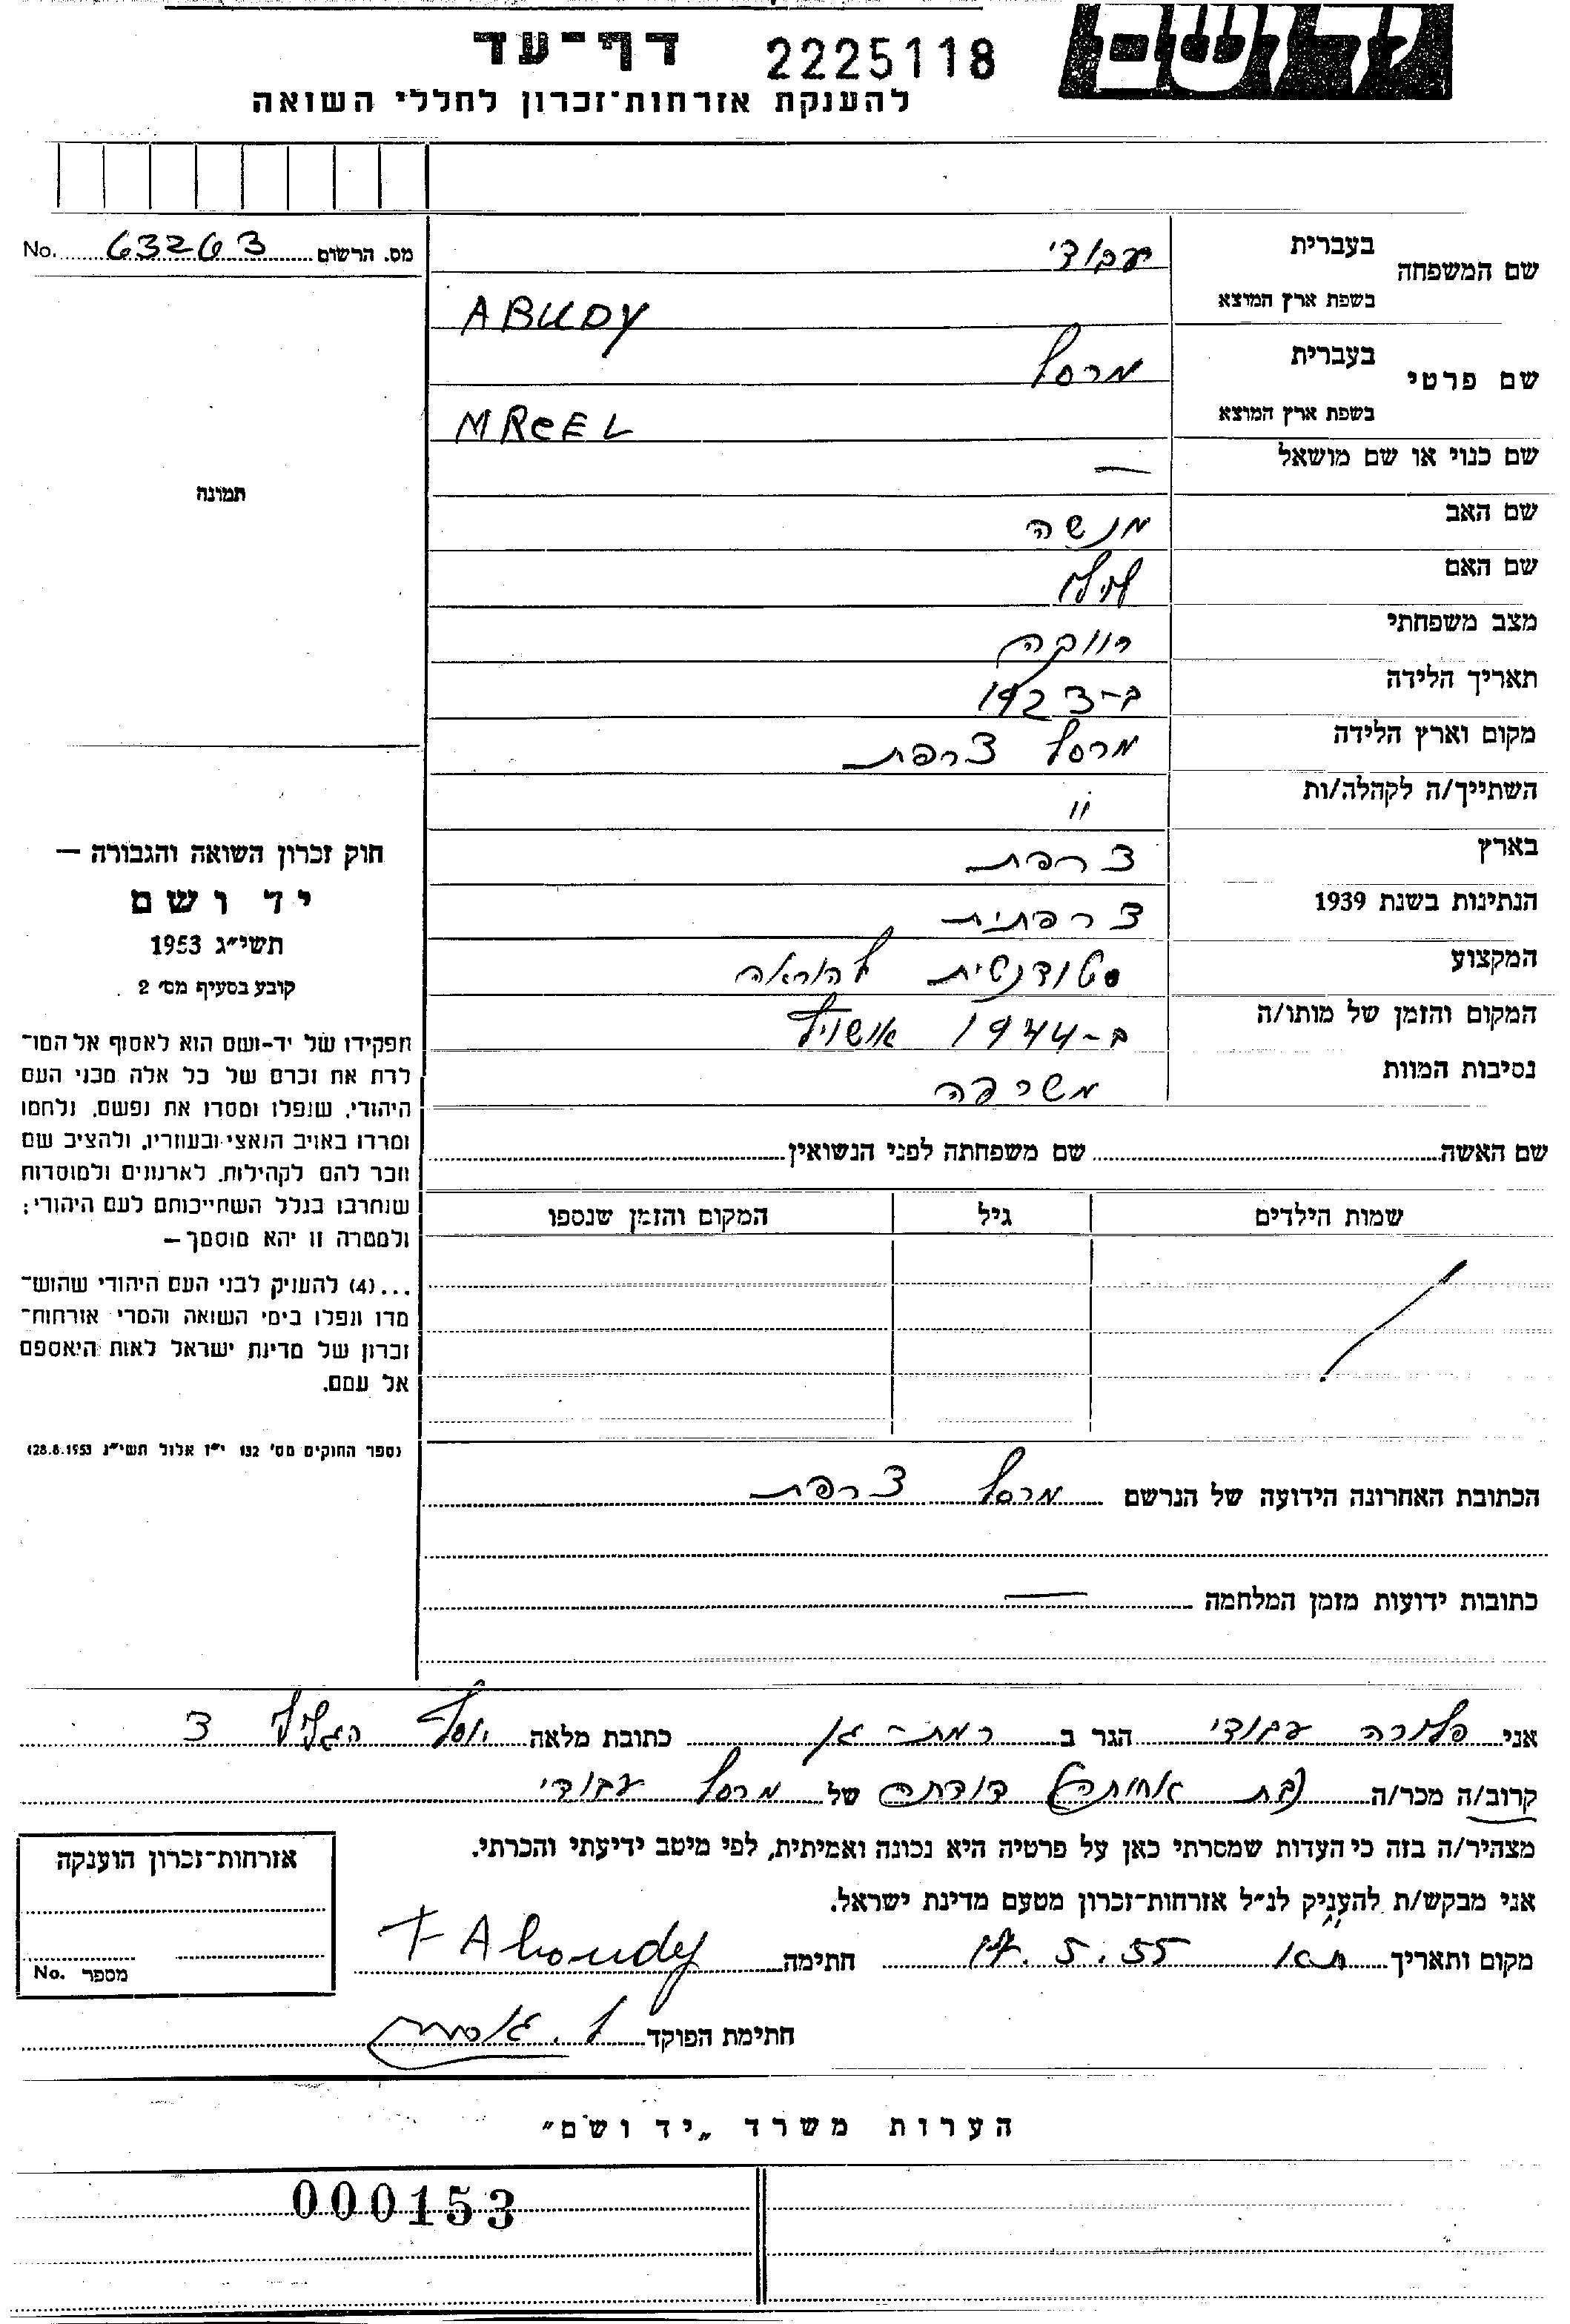 יד ושם
דף־עד 2225118
להענקת אזרחות־זכרון לחללי השואה
מס. הרשום 63263 No.
שם המשפחה בעברית עבודי
בשפת ארץ המוצא ABUDY
שם פרטי בעברית מרסל
בשפת ארץ המוצא MRCEL
שם כנוי או שם מושאל —
תמונה
שם האב מנשה
שם האם
מצב משפחתי רווקה
תאריך הלידה ב-1923
מקום וארץ הלידה מרסל צרפת
השתייך/ה לקהלה/ות "
בארץ צרפת
הנתינות בשנת 1939 צרפתית
המקצוע סטודנטית להוראה
המקום והזמן של מותו/ה ב-1944 אושויץ
נסיבות המוות משרפה
חוק זכרון השואה והגבורה —
יד ושם
תשי״ג 1953
קובע בסעיף מס׳ 2
תפקידו של יד-ושם הוא לאסוף אל המו־
לדת את זכרם של כל אלה מבני העם
היהודי, שנפלו ומסרו את נפשם, נלחמו
ומרדו באויב הנאצי ובעוזריו, ולהציב שם
וזכר להם לקהילות, לארגונים ולמוסדות
שנחרבו בגלל השתייכותם לעם היהודי;
ולמטרה זו יהא מוסמך —
...(4) להעניק לבני העם היהודי שהוש־
מדו ונפלו בימי השואה והמרי אזרחות־
זכרון של מדינת ישראל לאות היאספם
אל עמם.
(ספר החוקים מס׳ 132 י״ז אלול תשי״ג 28.8.1953)
שם האשה שם משפחתה לפני הנשואין
שמות הילדים גיל המקום והזמן שנספו
הכתובת האחרונה הידועה של הנרשם מרסל צרפת
כתובות ידועות מזמן המלחמה —
אני פלורה עבודי הגר ב רמת-גן כתובת מלאה יוסף הגלילי 3
קרוב/ה מכר/ה (בת אחותה) דודתה של מרסל עבודי
מצהיר/ה בזה כי העדות שמסרתי כאן על פרטיה היא נכונה ואמיתית, לפי מיטב ידיעתי והכרתי.
אני מבקש/ת להעניק לנ״ל אזרחות־זכרון מטעם מדינת ישראל.
מקום ותאריך ת"א 17.5.55 חתימה F Aboudy
חתימת הפוקד
אזרחות־זכרון הוענקה
מספר No.
הערות משרד „יד ושם״
000153